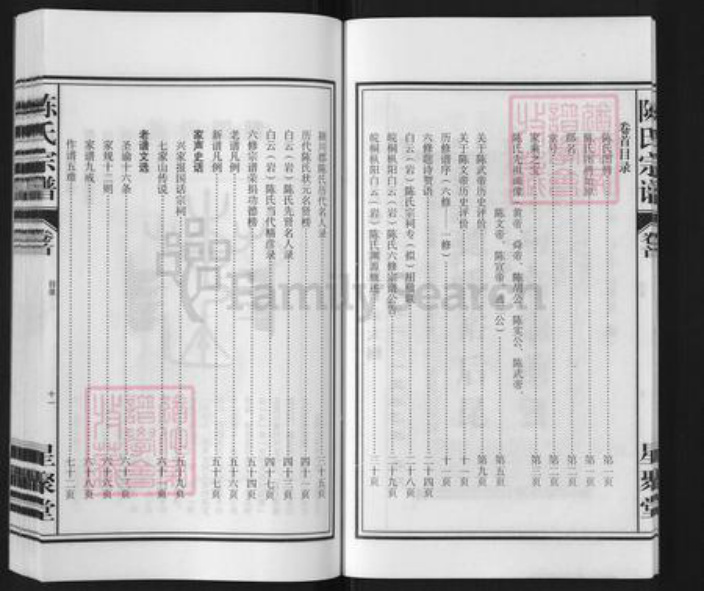 陈氏宗谱
卷首
星聚堂
卷首目录
陈氏图腾 第一页
堂号 第二页
家乘之宝 第三页
陈氏先祖画像（黄帝、舜帝、陈胡公、陈实公、陈武帝、
陈文帝、陈宣帝、遇一公） 第五页
关于陈武帝历史评价 第九页
关于陈文帝历史评价 十一页
历修谱序（六修——一修）
六修题诗贺语 二十四页
白云（岩）陈氏宗祠专（拟）用楹联 二十八页
皖桐枞阳白云（岩）陈氏六修宗谱公告 二十九页
皖桐枞阳白云（岩）陈氏渊源概述 三十页
颍川郡陈氏历代名人录 三十五页
历代陈氏状元名贤榜
白云（岩）陈氏先贤名人录 四十三页
白云（岩）陈氏当代精彦录 四十七页
六修宗谱荣捐功德榜 五十四页
老谱凡例 五十六页
新谱凡例 五十七页
家声史话
兴家报国话宗祠 五十九页
七家山传说 六十一页
老谱文选
圣谕十六条
家规十二则 六十六页
家谱九戒 六十八页
作谱五难 七十二页
陈氏宗谱
卷首
目录
十一
星聚堂
FamilySearch